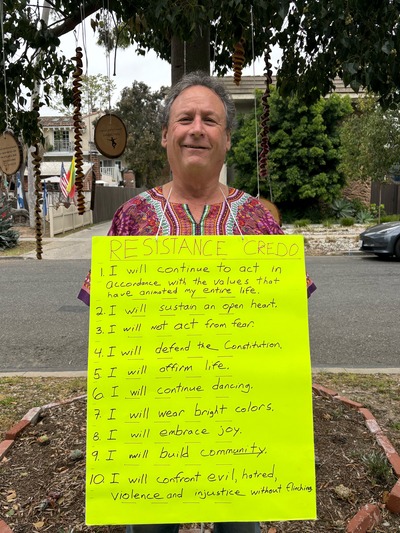 RESISTANCE "CREDO
1. I will continue to act in
accordance with the values that
have animated my entire life.
2. I will sustain an open heart.
3. I will not act from fear.
4. I will defend the Constitution.
5 I will affirm life.
6. I will continue dancing.
7 I will wear bright colors.
8 I will embrace joy.
9. I will build community.
10. I will confront evil, hatred,
violence and injustice without flinching.